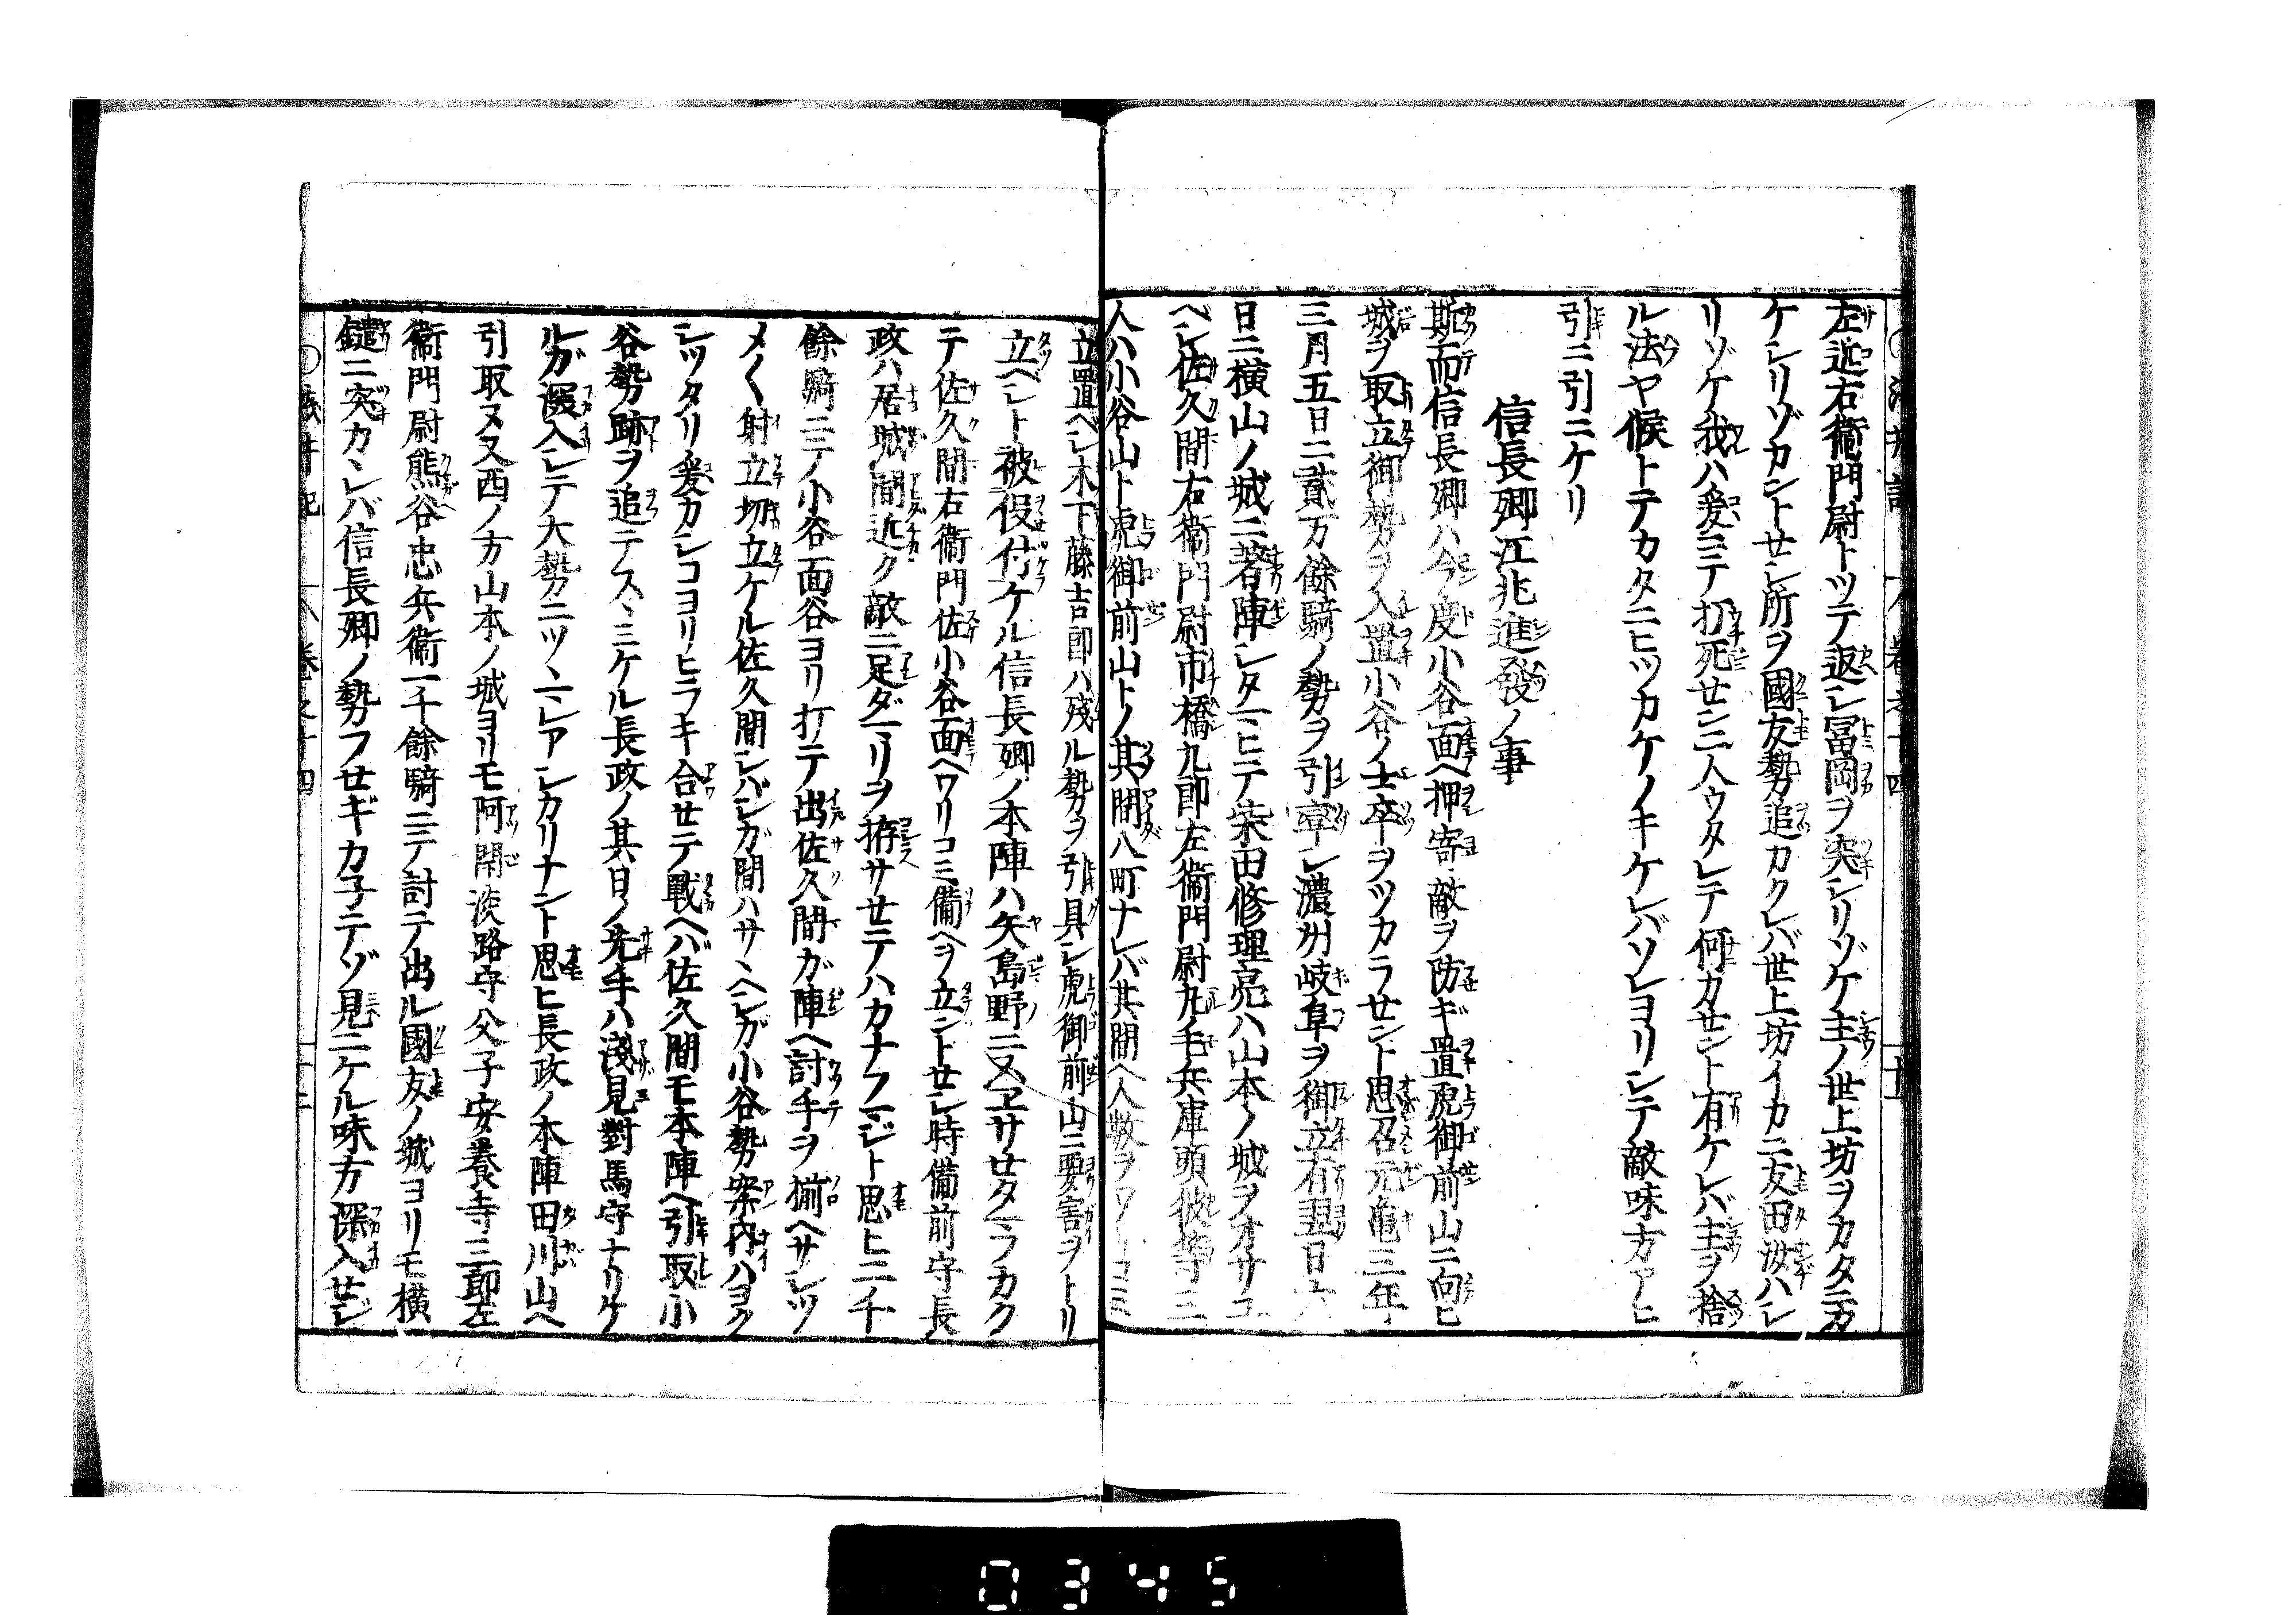 左近右衛門尉トツテ返シ冨岡ヲ突シリゾケ主ノ世上坊ヲカタニカ
ケシリゾカントせシ所ヲ國友勢追カクレバ世上坊イカニ友田汝ハシ
リゾケ我ハ爰ニテ打死せン二人ウタレテ何カせント有ケレバ主ヲ捨
ル法ヤ候トテカタニヒツカケノキケレバソレヨリシテ敵味方アヒ
引ニ引ニケリ
信長卿江北進發ノ事
斯而信長卿ハ今度小谷面ヘ押寄敵ヲ防ギ置虎御前山ニ向ヒ
城ヲ取立御勢ヲ入置小谷ノ士卒ヲツカラせント思召元亀三年
三月五日ニ貳万餘騎ノ勢ヲ引率シ濃州岐阜ヲ御立有翌日六
日ニ横山ノ城ニ著陣シタマヒテ柴田修理亮ハ山本ノ城ヲオサユ
ベシ佐久間右衛門尉市橋九郎左衛門尉丸毛兵庫頭彼等三
人ハ小谷山ト虎御前山トノ其間八町ナレバ其間ヘ人數ヲワリコミ
立置ベシ木下藤吉郎ハ残ル勢ヲ引具シ虎御前山ニ要害ヲトリ
立ベシト被役付ケル信長卿ノ本陣ハ矢島野ニスヱサせタマフカク
テ佐久間右衛門佐小谷面ヘワリコミ備ヘヲ立ントせシ時備前守長
政ハ居城間近ク敵ニ足ダマリヲ拵サせテハカナフマジト思ヒ二千
餘騎ニテ小谷面谷ヨリ打テ出佐久間ガ陣ヘ討手ヲ揃ヘサシツ
メ〱射立切立ケル佐久間シバシガ間ハサヽヘシガ小谷勢案内ハヨク
シツタリ爰カシコヨリヒラキ合せテ戰ヘバ佐久間モ本陣ヘ引取小
谷勢跡ヲ追テスヽミケル長政ノ其日ノ先手ハ淺見對馬守ナリケ
ルガ深入シテ大勢ニツヽマレアシカリナント思ヒ長政ノ本陣田川山ヘ
引取ヌ又西ノ方山本ノ城ヨリモ阿閉淡路守父子安養寺三郎左
衛門尉熊谷忠兵衛一千餘騎ニテ討テ出ル國友ノ城ヨリモ横
鑓ニ突カヽレバ信長卿ノ勢フせギカ子テゾ見ニケル味方深入せジ